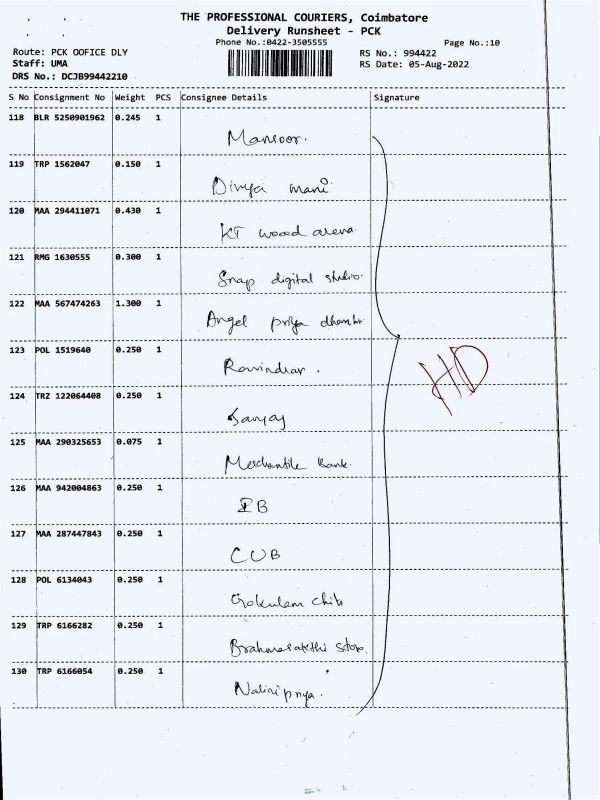 THE PROFESSIONAL COURIERS, Coimbatore
Delivery Runsheet - PCK
Phone No.:0422-3505555 Page No.:10
Route: PCK OOFICE DLY RS No.: 994422
Staff: UMA RS Date: 05-Aug-2022
DRS No.: DCJB99442210
S No Consignment No Weight PCS Consignee Details Signature
118 BLR 5250901962 0.245 1
Mansoor.
119 TRP 1562047 0.150 1
Divya mani
120 MAA 294411071 0.430 1
KT wood arena
121 RMG 1630555 0.300 1
Snap digital studio.
122 MAA 567474263 1.300 1
Angel priya
123 POL 1519640 0.250 1
HD
124 TRZ 122064408 0.250 1
Sanjay
125 MAA 290325653 0.075 1
Merchantile Bank.
126 MAA 942004863 0.250 1
IB
127 MAA 287447843 0.250 1
CUB
128 POL 6134043 0.250 1
Gokulam chits
129 TRP 6166282 0.250 1
130 TRP 6166054 0.250 1
Nalini priya.